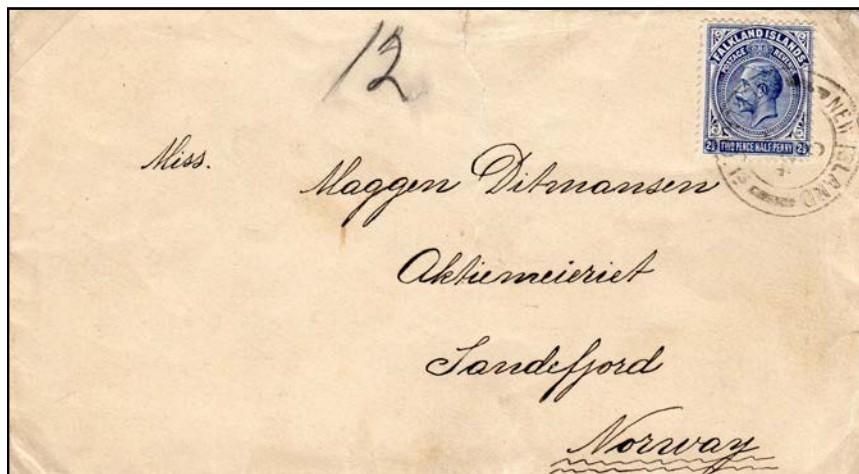 12
FALKLAND ISLANDS
POSTAGE REVENUE
2½ TWO PENCE HALF PENNY 2½
NEW ISLAND
Miss. Maggen Ditmansen
Aktiemeieriet
Sandefjord
Norway